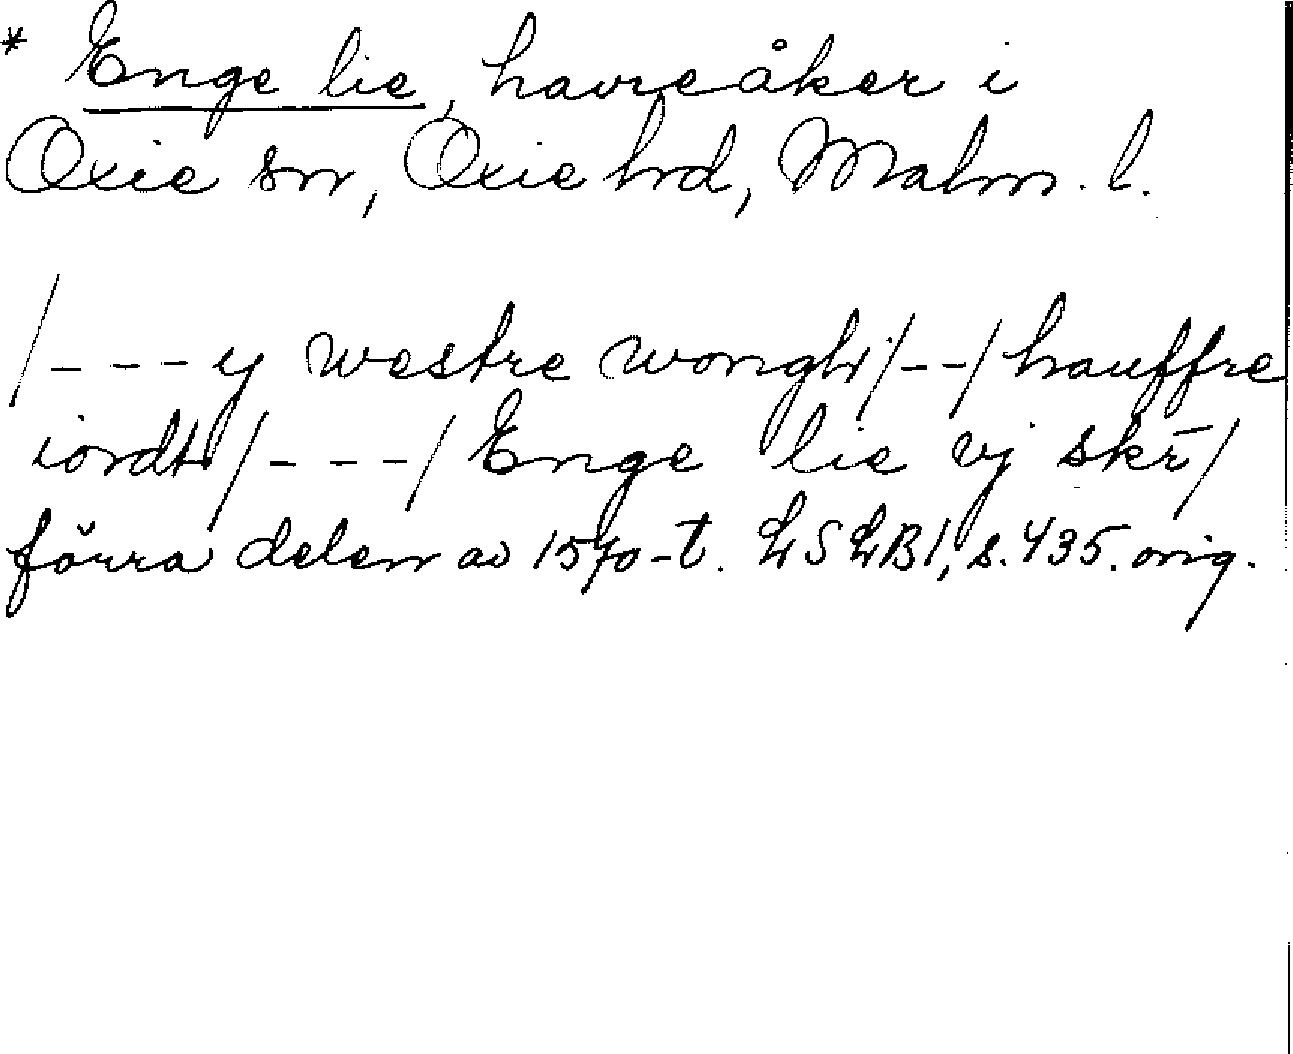 * Enge lie, havreåker i
Oxie sn, Oxie hd, Malm. l.
/--- y westre wongh /--/ hauffre
iordt /---/ Enge lie vj skr̄ /
förra delen av 1570-t. LSLB1, s. 435. orig.